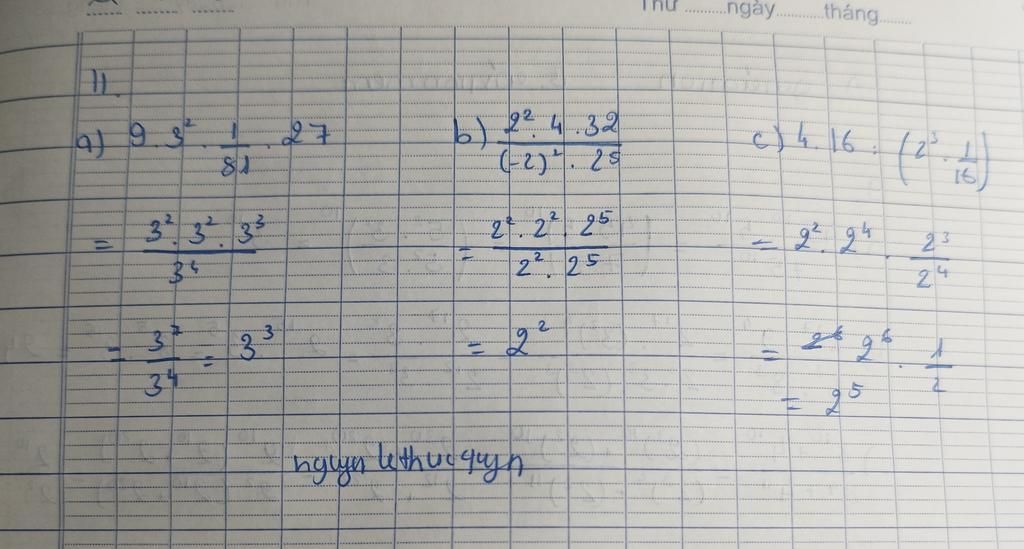 Thứ ........ngày...........tháng........
11.
a) 9 . 3² . 1/81 . 27
= (3² . 3² . 3³)/3⁴
= 3⁷/3⁴ = 3³
b) (2² . 4 . 32)/((-2)² . 2⁵)
= (2² . 2² . 2⁵)/(2² . 2⁵)
= 2²
c) 4 . 16 : (2³ . 1/16)
= 2² . 2⁴ . 2³/2⁴
= 2⁶ . 1/2
= 2⁵
nguyn le thuc quyn